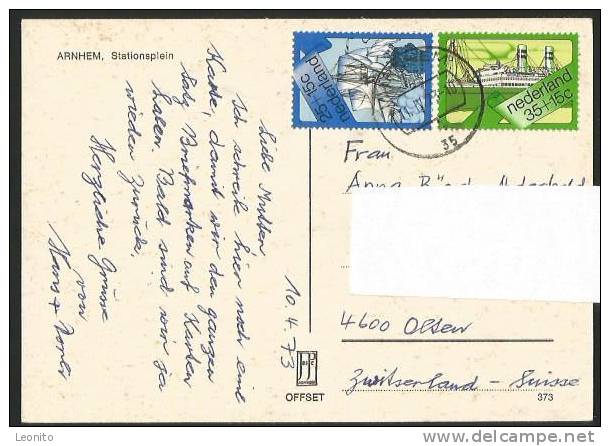 ARNHEM, Stationsplein
Liebe Mutter!
Ich schreibe hier noch eine
Karte, damit wir den ganzen
Satz Briefmarken auf Karten
haben. Bald sind wir ja
wieder zurück.
Herzliche Grüsse
von
Hans +
10.4.73
nederland
25+15c
nederland
35+15c
35
Frau
Anna
4600 Olten
Zwitserland - Suisse
OFFSET
373
Leonito
http://www.delcampe.net